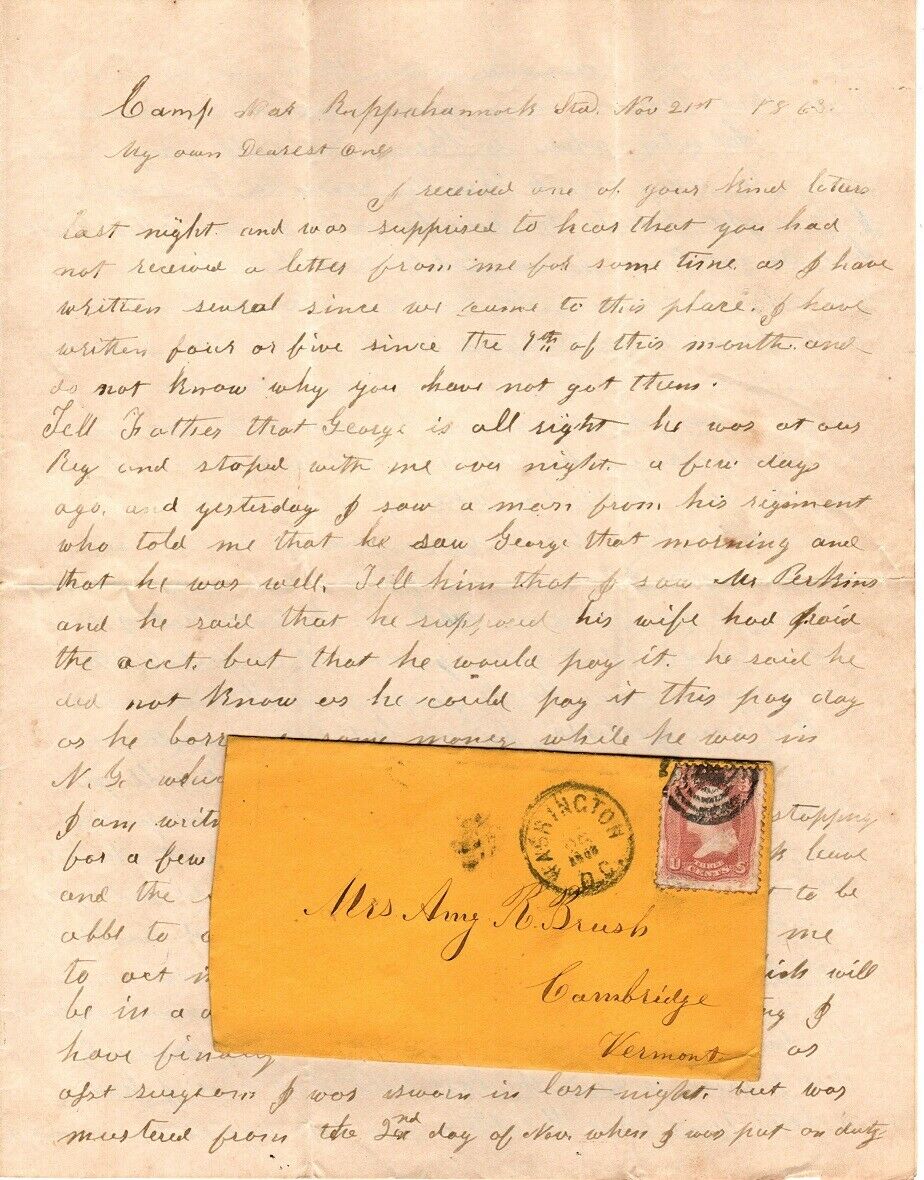 Camp Near Rappahannock Sta. Nov 21st 1863.
My own Dearest One
I received one of your kind leters
last night. and was supprised to hear that you had
not received a letter from me for some time. as I have
written several since we came to this place. I have
written four or five since the 9th of this month. and
do not know why you have not got them.
Tell Father that George is all right he was at our
Reg and stoped with me over night. a few days
ago. and yesterday I saw a man from his regiment
who told me that he saw George that morning and
that he was well. Tell him that I saw Mr Perkins
and he said that he supposed his wife had paid
the acct. but that he would pay it. he said he
did not know as he could pay it this pay day
as he some money while he was in
N.
I am stopping
for a few leave
and the to be
able to me
to act will
be in a I
have as
asst surgeon I was sworn in last night. but was
mustered from the 2nd day of Nov. when I was put on duty
WASHINGTON
D.C.
U 3 CENTS S
Mrs Amy R. Brush
Cambridge
Vermont